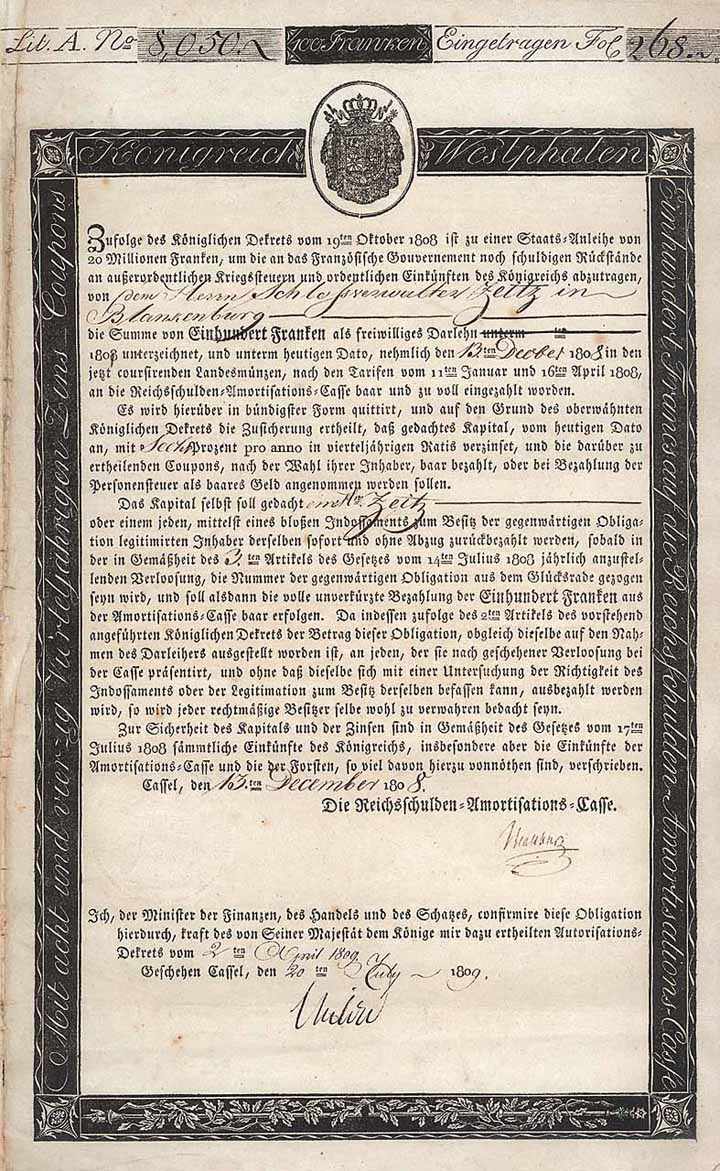 Lit. A. No 8,050. 100 Franken Eingetragen Fol 268.
Königreich Westphalen
Mit acht und vierzig Vierteljährigen Zins-Coupons
Einhundert Francs auf die Reichsschulden-Amortisations-Casse
Zufolge des Königlichen Dekrets vom 19ten Oktober 1808 ist zu einer Staats-Anleihe von
20 Millionen Franken, um die an das Französische Gouvernement noch schuldigen Rückstände
an außerordentlichen Kriegssteuern und ordentlichen Einkünften des Königreichs abzutragen,
von dem Herrn Schlossverwalter Zeitz in
Blankenburg
die Summe von Einhundert Franken als freiwilliges Darlehn unterm ten
1808 unterzeichnet, und unterm heutigen Dato, nehmlich den 13.ten December 1808 in den
jetzt coursirenden Landesmünzen, nach den Tarifen vom 11ten Januar und 16ten April 1808,
an die Reichsschulden-Amortisations-Casse baar und zu voll eingezahlt worden.
Es wird hierüber in bündigster Form quittirt, und auf den Grund des oberwähnten
Königlichen Dekrets die Zusicherung ertheilt, daß gedachtes Kapital, vom heutigen Dato
an, mit Sechs Prozent pro anno in vierteljährigen Ratis verzinset, und die darüber zu
ertheilenden Coupons, nach der Wahl ihrer Inhaber, baar bezahlt, oder bei Bezahlung der
Personensteuer als baares Geld angenommen werden sollen.
Das Kapital selbst soll gedachtem Hr. Zeitz
oder einem jeden, mittelst eines bloßen Indossaments zum Besitz der gegenwärtigen Obliga-
tion legitimirten Inhaber derselben sofort und ohne Abzug zurückbezahlt werden, sobald in
der in Gemäßheit des 3.ten Artikels des Gesetzes vom 14ten Julius 1808 jährlich anzustel-
lenden Verloosung, die Nummer der gegenwärtigen Obligation aus dem Glücksrade gezogen
seyn wird, und soll alsdann die volle unverkürzte Bezahlung der Einhundert Franken aus
der Amortisations-Casse baar erfolgen. Da indessen zufolge des 2ten Artikels des vorstehend
angeführten Königlichen Dekrets der Betrag dieser Obligation, obgleich dieselbe auf den Nah-
men des Darleihers ausgestellt worden ist, an jeden, der sie nach geschehener Verloosung bei
der Casse präsentirt, und ohne daß dieselbe sich mit einer Untersuchung der Richtigkeit des
Indossaments oder der Legitimation zum Besitz derselben befassen kann, ausbezahlt werden
wird, so wird jeder rechtmäßige Besitzer selbe wohl zu verwahren bedacht seyn.
Zur Sicherheit des Kapitals und der Zinsen sind in Gemäßheit des Gesetzes vom 17ten
Julius 1808 sämmtliche Einkünfte des Königreichs, insbesondere aber die Einkünfte der
Amortisations-Casse und die der Forsten, so viel davon hierzu vonnöthen sind, verschrieben.
Cassel, den 13.ten December 1808.
Die Reichsschulden-Amortisations-Casse.
Ich, der Minister der Finanzen, des Handels und des Schatzes, confirmire diese Obligation
hierdurch, kraft des von Seiner Majestät dem Könige mir dazu ertheilten Autorisations-
Dekrets vom 2ten April 1809
Geschehen Cassel, den 20ten July 1809.